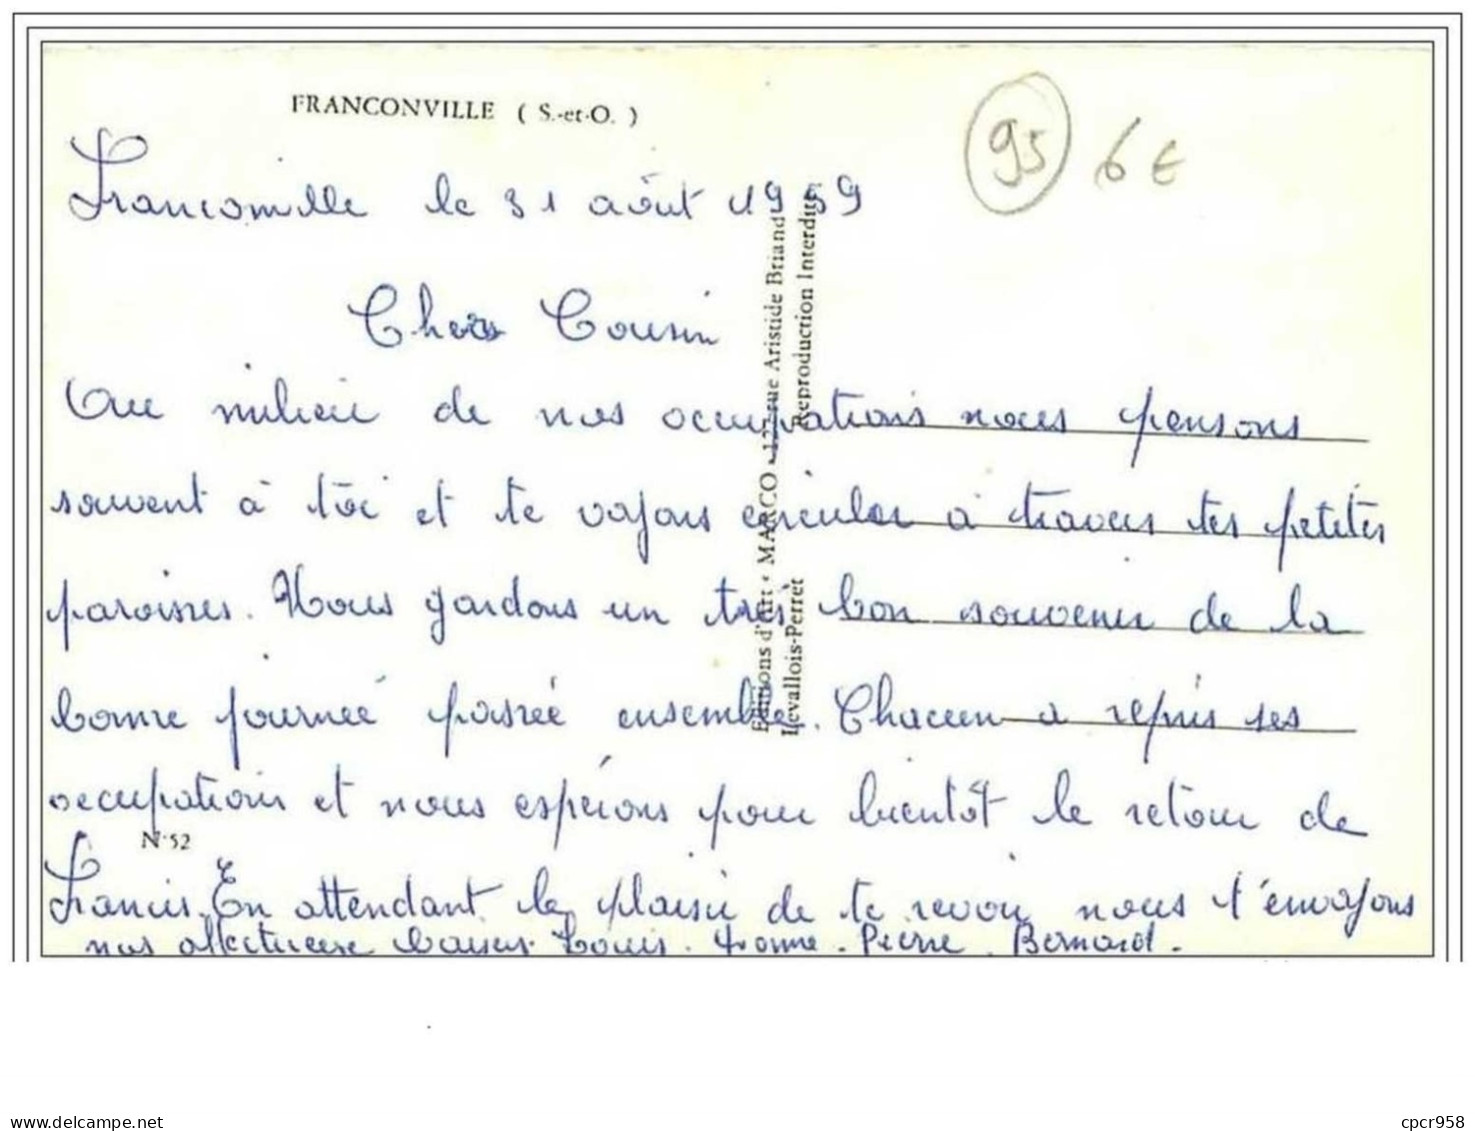 FRANCONVILLE ( S.-et-O. )
95 6 €
Franconville le 31 août 1959
Cher Cousin
Au milieu de nos occupations nous pensons
souvent à toi et te voyons circuler à travers tes petites
paroisses. Nous gardons un très bon souvenir de la
bonne journée passée ensemble. Chacun a repris ses
occupations et nous espérons pour bientôt le retour de
Francis. En attendant le plaisir de te revoir nous t'envoyons
nos affectueux baisers. Louis. Yvonne. Pierre. Bernard.
N° 52
Editions d'Art « MARCO » 127 rue Aristide Briand
Levallois-Perret Reproduction Interdite
delcampe.net
cpcr958